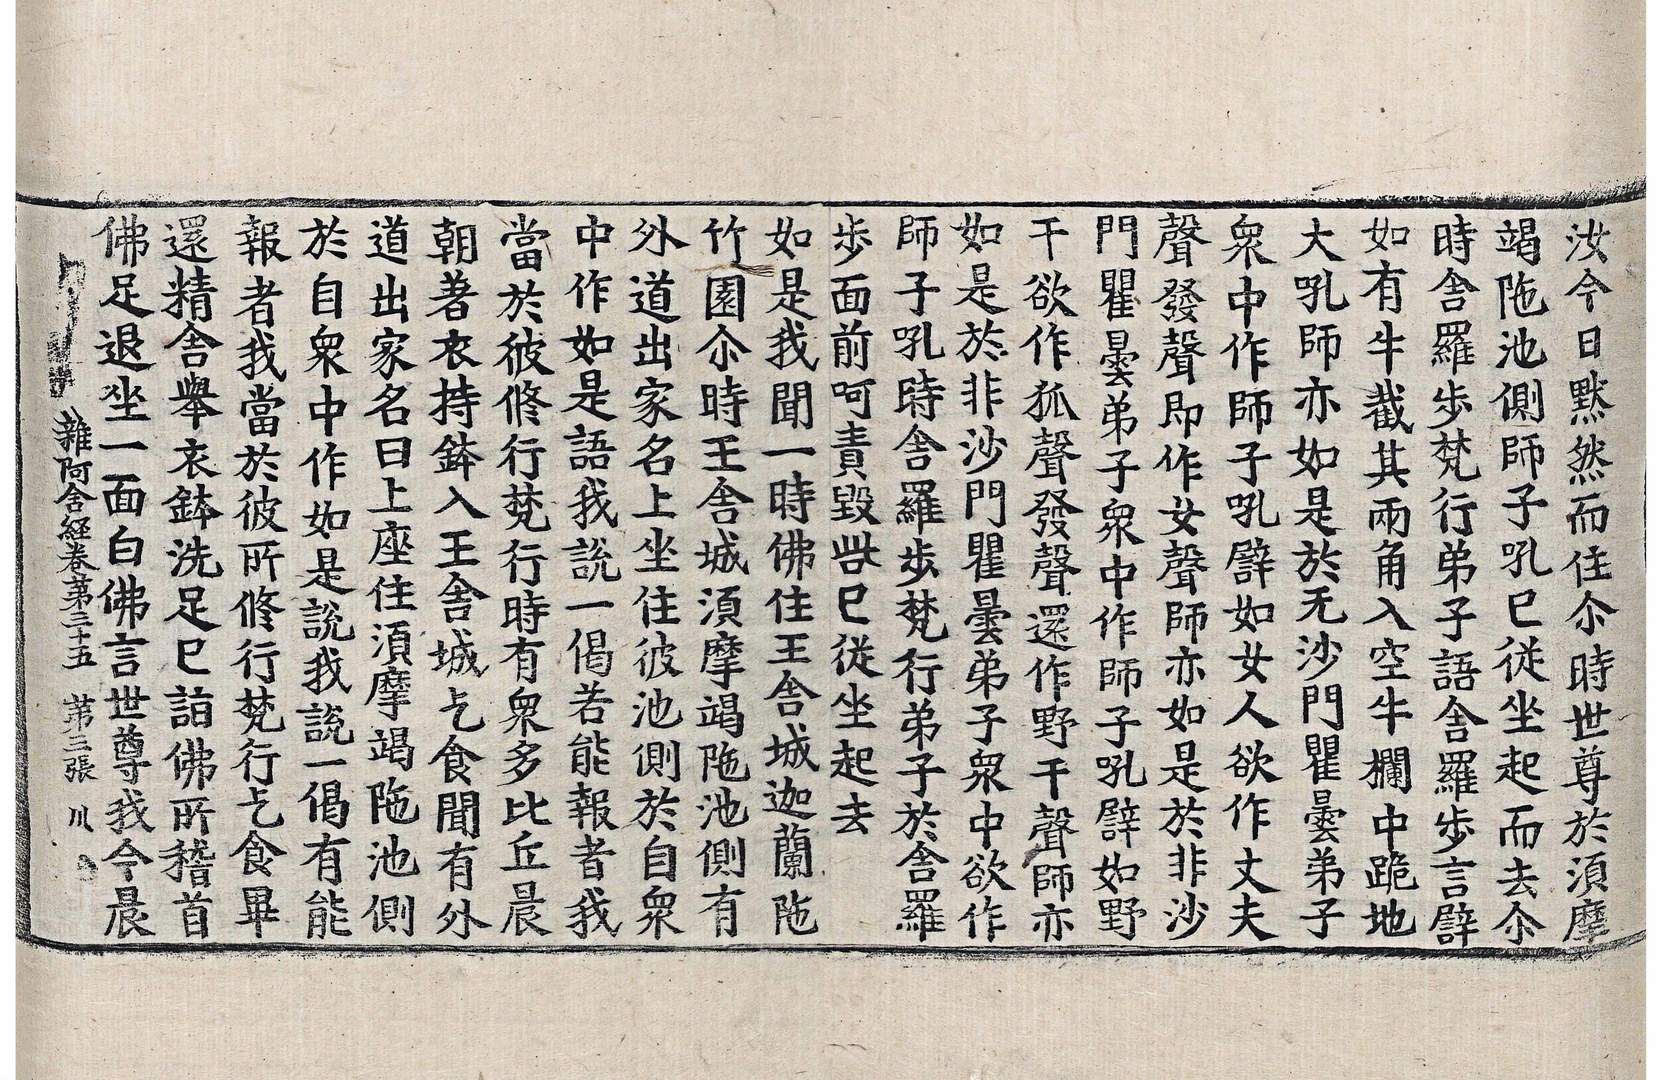 汝今日黙然而住尒時世尊於湏摩
竭陁池側師子吼已従坐起而去尒
時舎羅歩梵行弟子語舎羅歩言譬
如有牛截其兩角入空牛欄中跪地
大吼師亦如是於无沙門瞿曇弟子
衆中作師子吼譬如女人欲作丈夫
聲發聲即作女聲師亦如是於非沙
門瞿曇弟子衆中作師子吼譬如野
干欲作狐聲發聲還作野干聲師亦
如是於非沙門瞿曇弟子衆中欲作
師子吼時舎羅歩梵行弟子於舎羅
歩面前呵責毀呰已従坐起去
如是我聞一時佛住王舎城迦蘭陁
竹園尒時王舎城湏摩竭陁池側有
外道出家名上坐住彼池側於自衆
中作如是語我說一偈若能報者我
當於彼修行梵行時有衆多比丘晨
朝著衣持鉢入王舎城乞食聞有外
道出家名曰上座住湏摩竭陁池側
於自衆中作如是說我說一偈有能
報者我當於彼所修行梵行乞食畢
還精舎舉衣鉢洗足已詣佛所稽首
佛足退坐一面白佛言世尊我今晨
雜阿含経卷第三十五　第三張　川